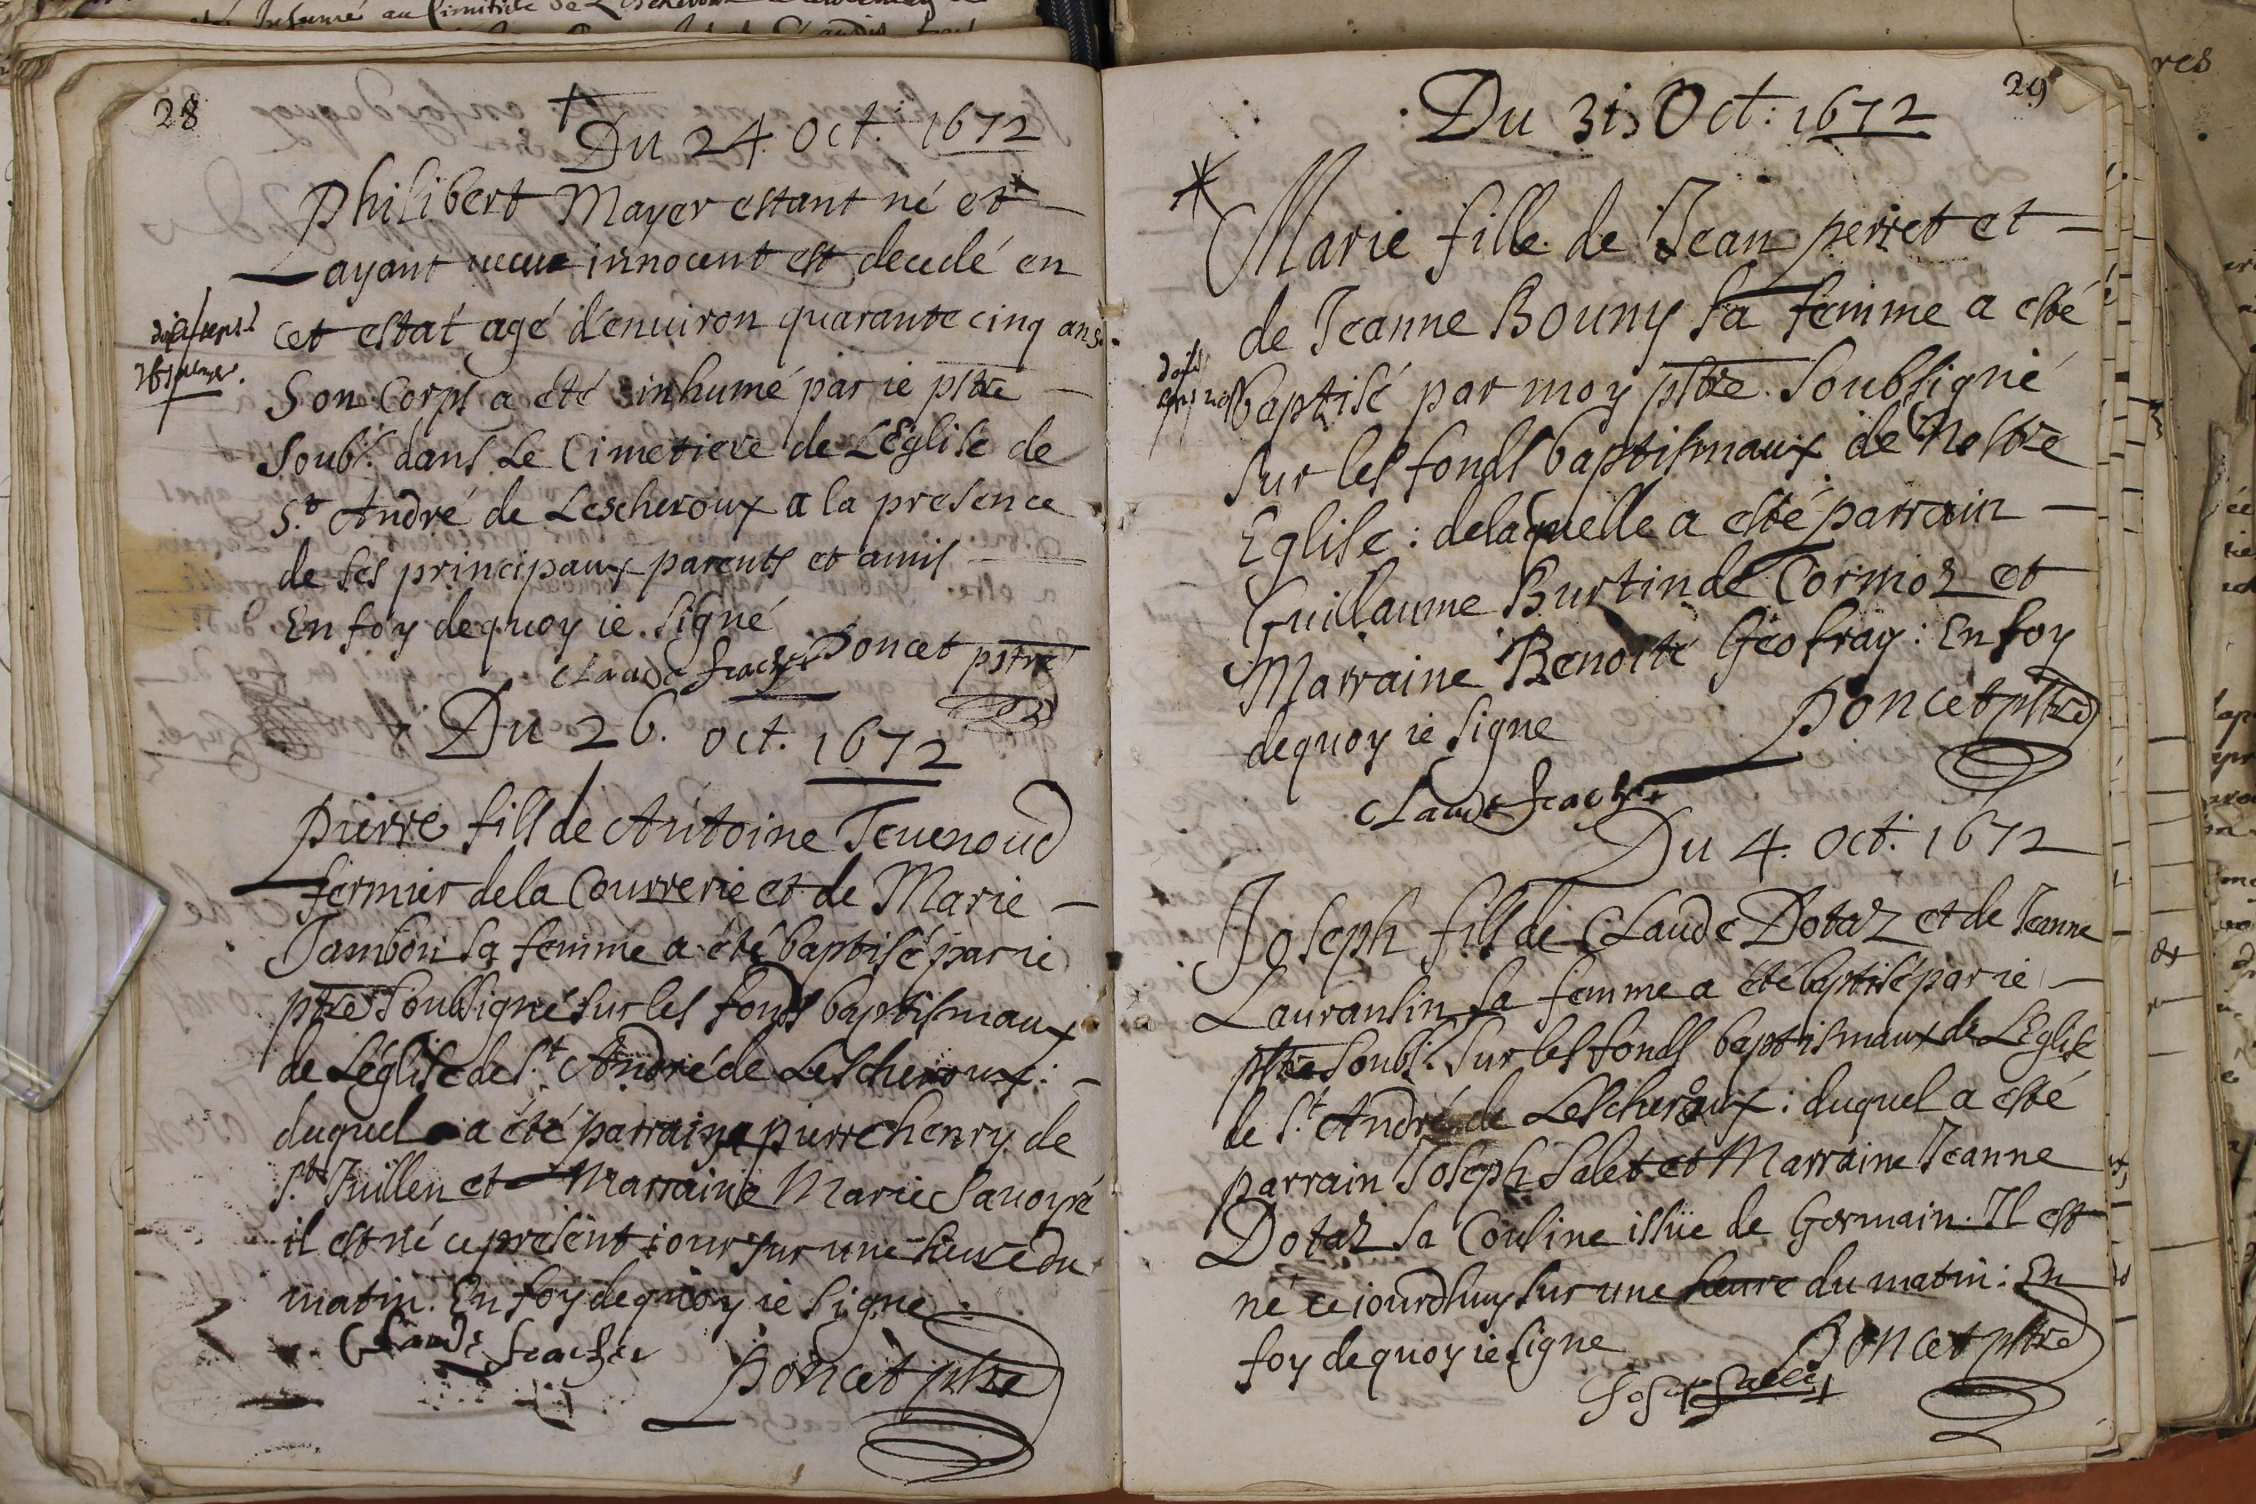 28
Du 24. Oct. 1672
Philibert Mayer estant né et
ayant vecu innocent est decedé en
cet estat agé d'enuiron quarante cinq ans.
Son Corps a été inhumé par ie pstre
Soubs. dans Le Cimetiere de LEglise de
S.t André de Lescheroux a la presence
de ses principaux parents et amis
En foy dequoy ie signé
Poncet pstre
Claude
Du 26. oct. 1672
Pierre fils de Antoine Teuenoud
fermier dela Courrerie et de Marie
Jambon sa femme a été baptisé par ie
pstre Soubsigné sur les fonds baptismaux
de Léglise de S.t André de Lescheroux:
duquel a été parrain pierre henry de
S.t Juillen et Marraine Marie Sauoyé
il est né ce present iour sur une heure du
matin. En foy dequoy ie signe.
Claude
Poncet pstre
29
Du 31 Oct: 1672
Marie fille de Jean perret et
de Jeanne Bouny sa femme a esté
baptisé par moy pstre. Soubsigné
sur les fonds baptismaux de Nostre
Eglise: delaquelle a esté parrain
Guillaume Burtin de Cormoz et
Marraine Benoite Geofray: En foy
dequoy ie signe
Poncet pstre
Claude
Du 4. Oct. 1672
Joseph fils de Claude Dotaz et de Jeanne
Lauransin sa femme a été baptisé par ie
pstre Soubs. sur les fonds baptismaux de LEglise
de S.t André de Lescheroux: duquel a esté
parrain Joseph Salet et Marraine Jeanne
Dotaz sa Cousine issüe de Germain. Il est
né ce iourdhuy sur une heure du matin: En
foy dequoy ie signe
Poncet pstre